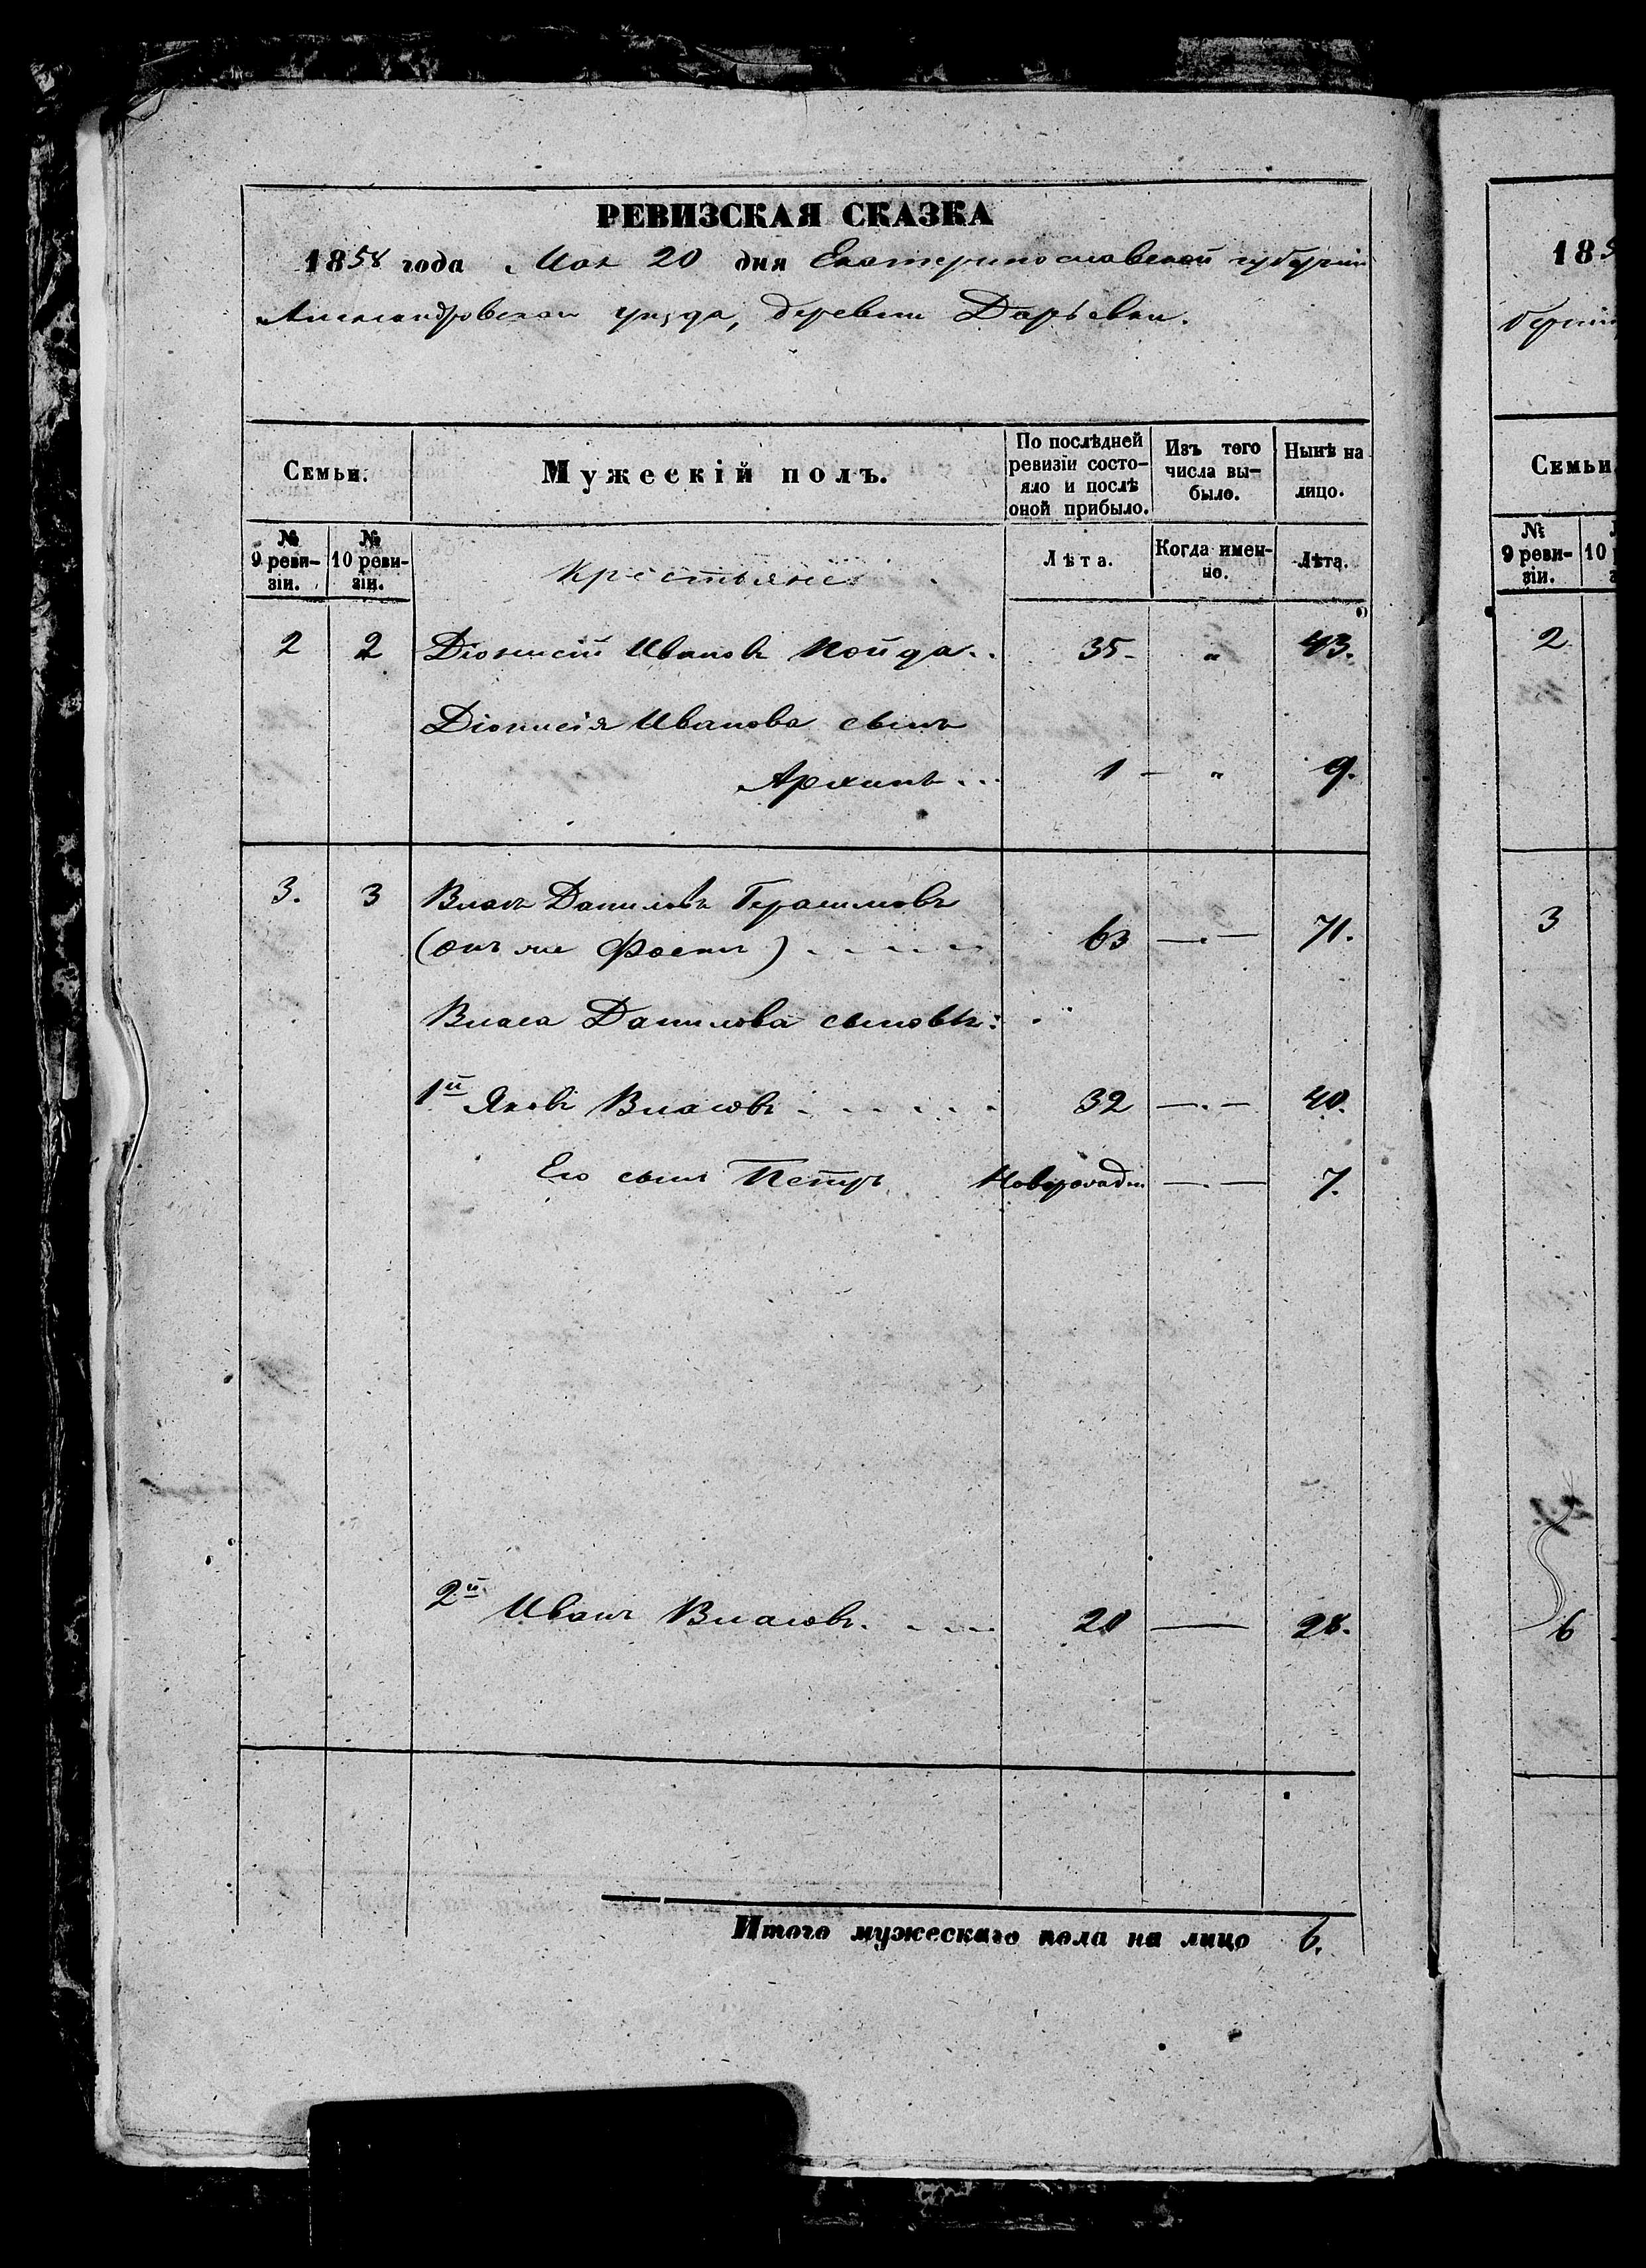 РЕВИЗСКАЯ СКАЗКА
1858 года Мая 20 дня Екатеринославской губернии
Александровскаго уѣзда, деревни Дарьевки.
Семьи. Мужескій полъ. По послѣдней ревизіи состояло и послѣ оной прибыло. Изъ того числа выбыло. Нынѣ на лицо.
№ 9 ревизіи. № 10 ревизіи. Крестьяне Лѣта. Когда именно. Лѣта.
2 2 Діонисій Ивановъ Пойда.. 35- " 43.
Діонисія Иванова сынъ
Архипъ... 1 - " 9.
3. 3 Власъ Даниловъ Герасимовъ
(онъ же ) ..... 63 —.— 71.
Власа Данилова сыновья:
1й Яковъ Власовъ ...... 32 —.— 40.
Его сынъ Петръ Новорожден —.— 7.
2й Иванъ Власовъ.... 20 — 28.
Итого мужескаго пола на лицо 6.
185
Семьи
№ 9 ревизіи. 10
2
3
6